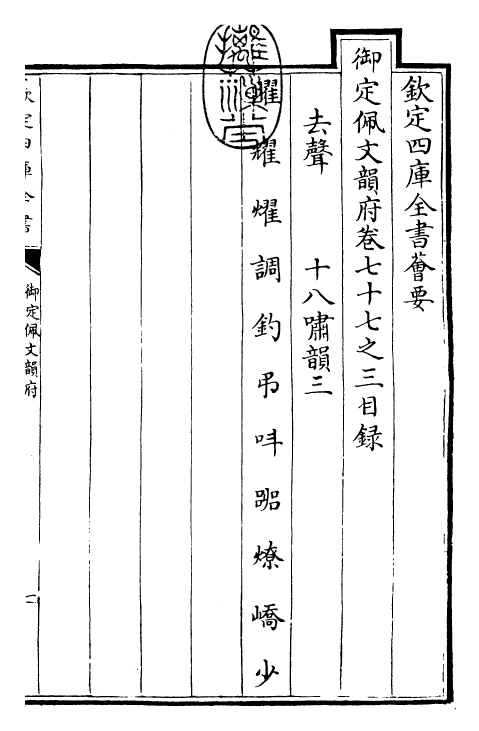 欽定四庫全書薈要
御定佩文韻府卷七十七之三目録
去聲　十八嘯韻三
曜耀燿調釣弔呌燎嶠少
欽定四庫全書
御定佩文韻府